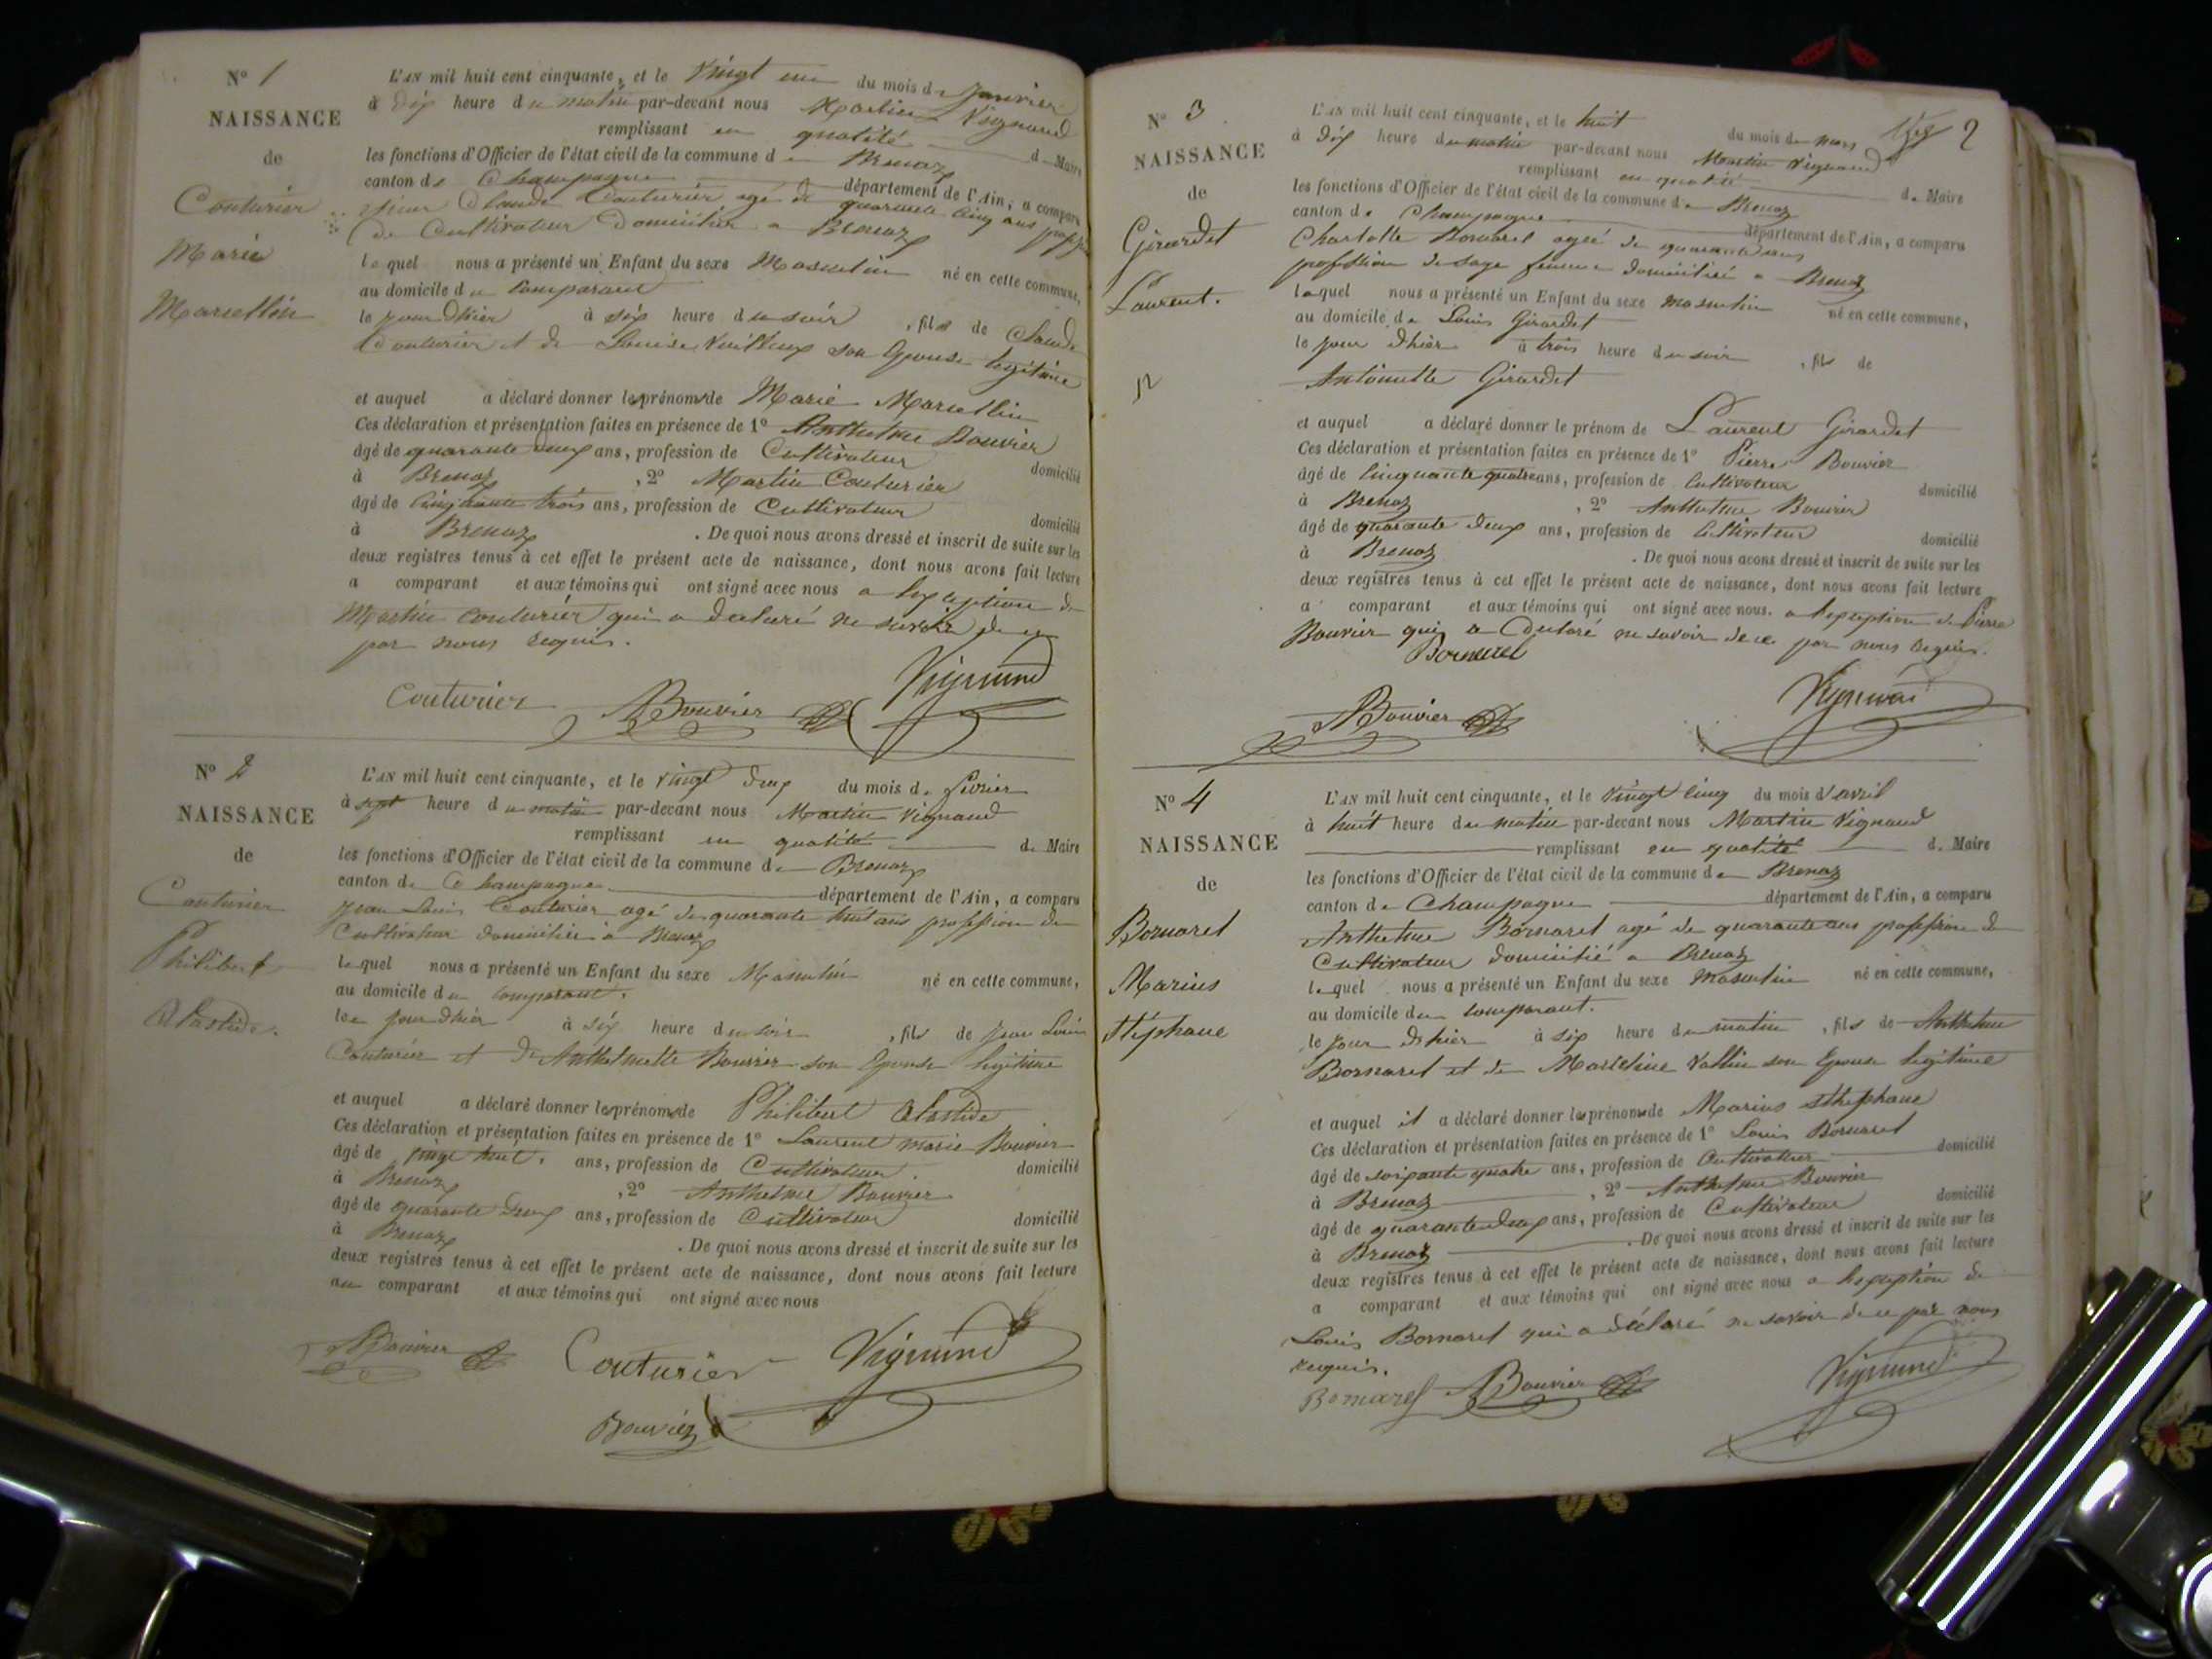 N° 1
NAISSANCE
de
Couturier
Marie
Marcellin
L'AN mil huit cent cinquante, et le vingt un du mois de janvier
à dix heure du matin par-devant nous Martin Vignand
remplissant en qualité de Maire
les fonctions d'Officier de l'état civil de la commune de Brenaz
canton de Champagne département de l'Ain, a comparu
sieur Claude Couturier agé de quarante cinq ans profession
de Cultivateur domicilier a Brenaz
lequel nous a présenté un Enfant du sexe Masculin né en cette commune,
au domicile du comparant
le jour dhier à six heure du soir, fils de Claude
Couturier et de Louise Vuilloux son Epouse legitime
et auquel a déclaré donner les prénoms de Marie Marcellin
Ces déclaration et présentation faites en présence de 1° Anthelme Bouvier
âgé de quarante deux ans, profession de Cultivateur domicilié
à Brenaz, 2° Martin Couturier
âgé de cinquante trois ans, profession de Cultivateur domicilié
à Brenaz. De quoi nous avons dressé et inscrit de suite sur les
deux registres tenus à cet effet le présent acte de naissance, dont nous avons fait lecture
a comparant et aux témoins qui ont signé avec nous a lexception de
Martin Couturier qui a déclaré ne savoir de ce
par nous requis.
Couturier ABouvier Vignand
N° 2
NAISSANCE
de
Couturier
Philibert
L'AN mil huit cent cinquante, et le vingt deux du mois de fevrier
à sept heure du matin par-devant nous Martin Vignand
remplissant en qualité de Maire
les fonctions d'Officier de l'état civil de la commune de Brenaz
canton de Champagne département de l'Ain, a comparu
jean Louis Couturier agé de quarante huit ans profession de
Cultivateur domicilié a Brenaz
lequel nous a présenté un Enfant du sexe Masculin né en cette commune,
au domicile du comparant.
le jour dhier à six heure du soir, fils de jean Louis
Couturier et de Anthelmette Bouvier son Epouse legitime
et auquel a déclaré donner les prénoms de Philibert
Ces déclaration et présentation faites en présence de 1° Laurent Marie Bouvier
âgé de vingt huit. ans, profession de Cultivateur domicilié
à Brenaz, 2° Anthelme Bouvier
âgé de quarante deux ans, profession de Cultivateur domicilié
à Brenaz. De quoi nous avons dressé et inscrit de suite sur les
deux registres tenus à cet effet le présent acte de naissance, dont nous avons fait lecture
au comparant et aux témoins qui ont signé avec nous
ABouvier Couturier Vignand
Bouvier
2
N° 3
NAISSANCE
de
Girardet
Laurent.
L'AN mil huit cent cinquante, et le huit du mois de mars
à dix heure du matin par-devant nous Martin Vignand
remplissant en qualité de Maire
les fonctions d'Officier de l'état civil de la commune de Brenaz
canton de Champagne département de l'Ain, a comparu
Charlotte Bornarel agée de quarante ans
profession de sage femme domicilié a Brenaz
laquel nous a présenté un Enfant du sexe masculin né en cette commune,
au domicile de Louis Girardet
le jour dhier à trois heure du soir, fils de
Antoinette Girardet
et auquel a déclaré donner le prénom de Laurent Girardet
Ces déclaration et présentation faites en présence de 1° Pierre Bouvier
âgé de cinquante quatre ans, profession de Cultivateur domicilié
à Brenaz, 2° Anthelme Bouvier
âgé de quarante deux ans, profession de Cultivateur domicilié
à Brenaz. De quoi nous avons dressé et inscrit de suite sur les
deux registres tenus à cet effet le présent acte de naissance, dont nous avons fait lecture
a comparant et aux témoins qui ont signé avec nous. a lexception de Pierre
Bouvier qui a déclaré ne savoir de ce par nous requis.
Bornarel
ABouvier Vignand
N° 4
NAISSANCE
de
Bornarel
Marius
Stéphane
L'AN mil huit cent cinquante, et le vingt cinq du mois d'avril
à huit heure du matin par-devant nous Martin Vignand
remplissant en qualité de Maire
les fonctions d'Officier de l'état civil de la commune de Brenaz
canton de Champagne département de l'Ain, a comparu
Anthelme Bornarel agé de quarante ans profession de
Cultivateur domicilié a Brenaz
lequel nous a présenté un Enfant du sexe Masculin né en cette commune,
au domicile du comparant.
le jour dhier à six heure du matin, fils de Anthelme
Bornarel et de Marceline Vallin son Epouse legitime
et auquel il a déclaré donner les prénoms de Marius Sthephane
Ces déclaration et présentation faites en présence de 1° Louis Bornarel
âgé de soixante quatre ans, profession de Cultivateur domicilié
à Brenaz, 2° Anthelme Bouvier
âgé de quarante deux ans, profession de Cultivateur domicilié
à Brenaz. De quoi nous avons dressé et inscrit de suite sur les
deux registres tenus à cet effet le présent acte de naissance, dont nous avons fait lecture
a comparant et aux témoins qui ont signé avec nous a lexception de
Louis Bornarel qui a déclaré ne savoir de ce par nous
requis.
Bornarel ABouvier Vignand